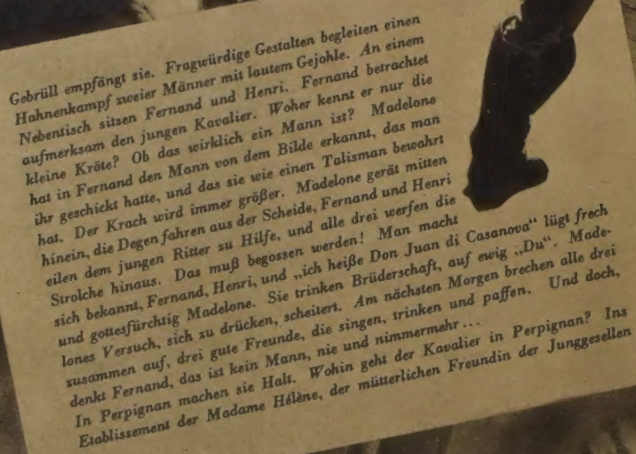 Gebrüll empfängt sie. Fragwürdige Gestalten begleiten einen
Hahnenkampf zweier Männer mit lautem Gejohle. An einem
Nebentisch sitzen Fernand und Henri. Fernand betrachtet
aufmerksam den jungen Kavalier. Woher kennt er nur die
kleine Kröte? Ob das wirklich ein Mann ist? Madelone
hat in Fernand den Mann von dem Bilde erkannt, das man
ihr geschickt hatte, und das sie wie einen Talisman bewahrt
hat. Der Krach wird immer größer. Madelone gerät mitten
hinein, die Degen fahren aus der Scheide, Fernand und Henri
eilen dem jungen Ritter zu Hilfe, und alle drei werfen die
Strolche hinaus. Das muß begossen werden! Man macht
sich bekannt, Fernand, Henri, und „ich heiße Don Juan di Casanova“ lügt frech
und gottesfürchtig Madelone. Sie trinken Brüderschaft, auf ewig „Du“. Made-
lones Versuch, sich zu drücken, scheitert. Am nächsten Morgen brechen alle drei
zusammen auf, drei gute Freunde, die singen, trinken und paffen. Und doch,
denkt Fernand, das ist kein Mann, nie und nimmermehr...
In Perpignan machen sie Halt. Wohin geht der Kavalier in Perpignan? Ins
Etablissement der Madame Hélène, der mütterlichen Freundin der Junggesellen